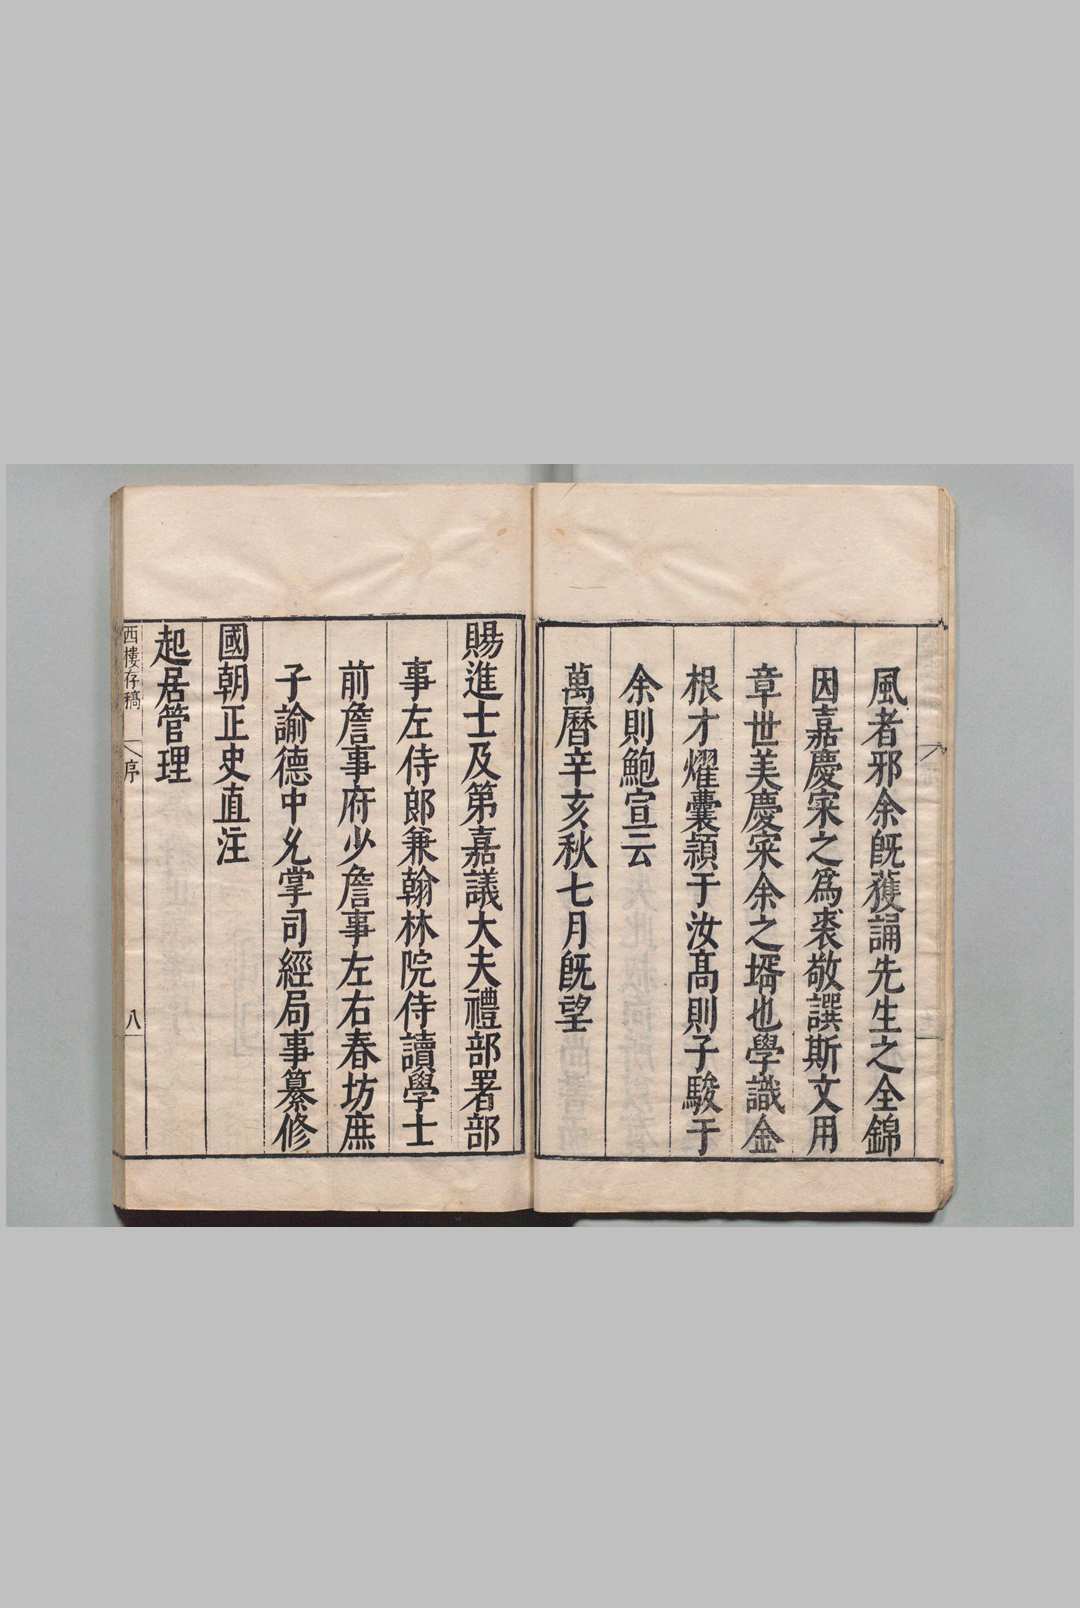 風者邪余旣蒦誦先生之全錦
因嘉慶宋之爲裘敬譔斯文用
章世美慶宋余之壻也學識金
根才燿囊潁于汝髙則子駿于
余則鮑宣云
萬曆辛亥秋七月旣望
賜進士及第嘉議大夫禮部署部
事左侍郎兼翰林院侍讀學士
前詹事府少詹事左右春坊庶
子諭德中允掌司經局事纂修
國朝正史直注
起居管理
西樓存稿 序 八